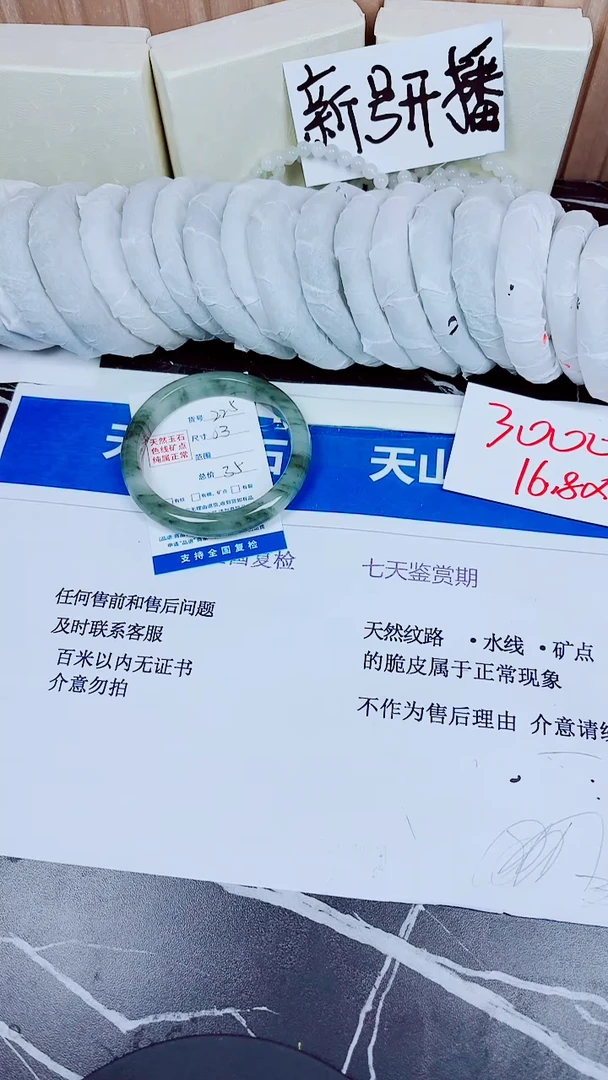 新号开播
3000
16.8
货号 225
天然玉石
色线矿点
纯属正常
尺寸 63
范围
总价 35
支持全国复检
天
石
天山
复检
七天鉴赏期
任何售前和售后问题
及时联系客服
百米以内无证书
介意勿拍
天然纹路 •水线 •矿点
的脆皮属于正常现象
不作为售后理由 介意请